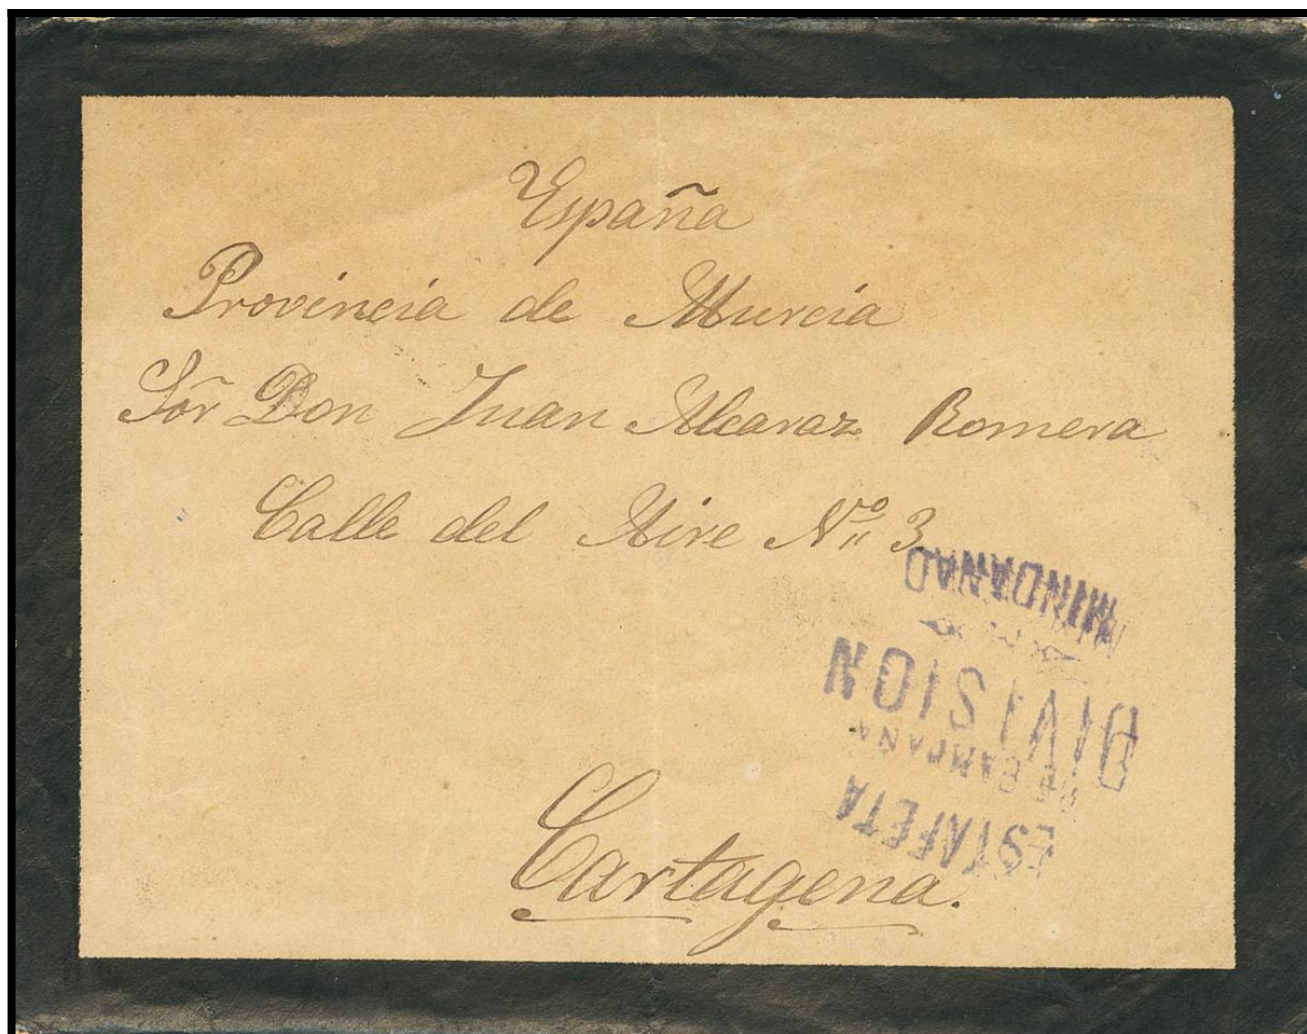 España
Provincia de Murcia
Sor̃ Don Juan Alcaraz Romera
Calle del Aire Nº 3
Cartagena.
ESTAFETA
DE CAMPAÑA
DIVISION
MINDANAO